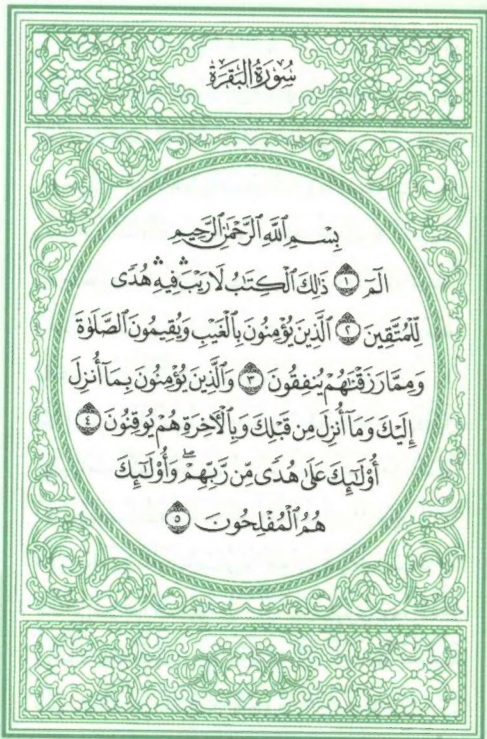 سُورَةُ البَقَرَةِ
بِسْمِ ٱللَّهِ ٱلرَّحْمَٰنِ ٱلرَّحِيمِ
الٓمٓ ۝١ ذَٰلِكَ ٱلْكِتَٰبُ لَا رَيْبَۛ فِيهِۛ هُدًى
لِّلْمُتَّقِينَ ۝٢ ٱلَّذِينَ يُؤْمِنُونَ بِٱلْغَيْبِ وَيُقِيمُونَ ٱلصَّلَوٰةَ
وَمِمَّا رَزَقْنَٰهُمْ يُنفِقُونَ ۝٣ وَٱلَّذِينَ يُؤْمِنُونَ بِمَآ أُنزِلَ
إِلَيْكَ وَمَآ أُنزِلَ مِن قَبْلِكَ وَبِٱلْءَاخِرَةِ هُمْ يُوقِنُونَ ۝٤
أُو۟لَٰٓئِكَ عَلَىٰ هُدًى مِّن رَّبِّهِمْۖ وَأُو۟لَٰٓئِكَ
هُمُ ٱلْمُفْلِحُونَ ۝٥